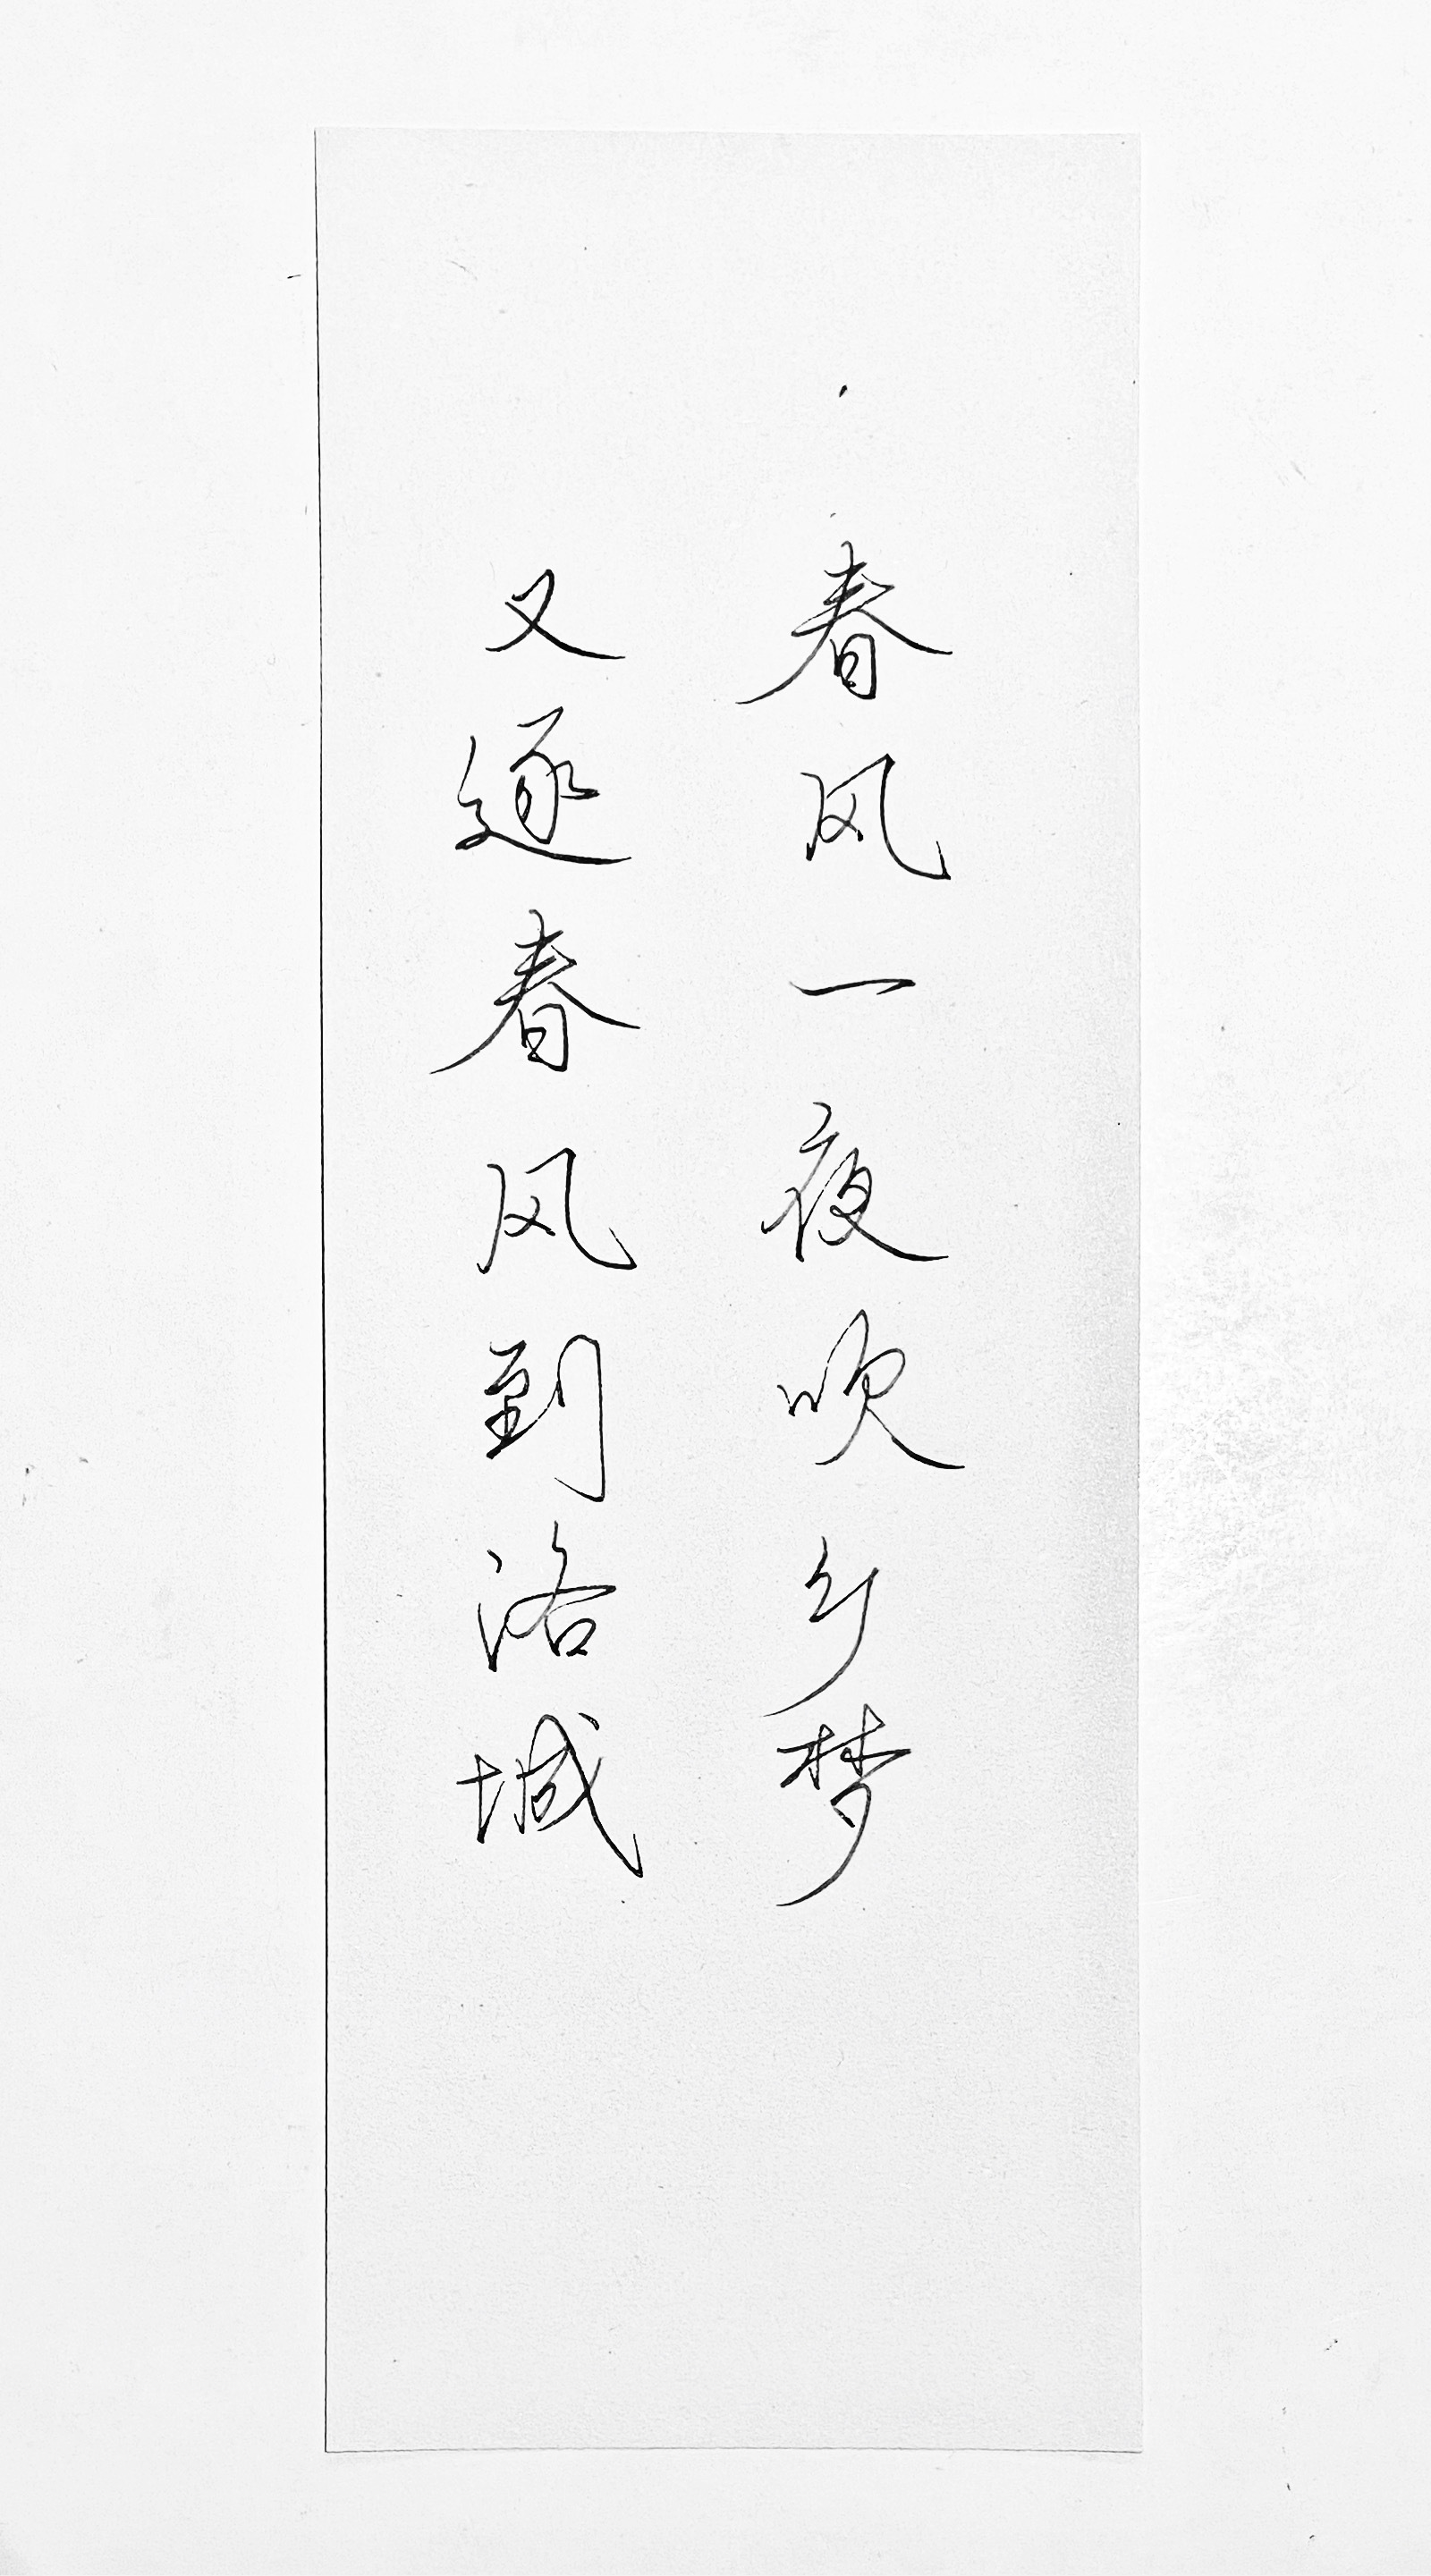 春风一夜吹乡梦
又逐春风到洛城